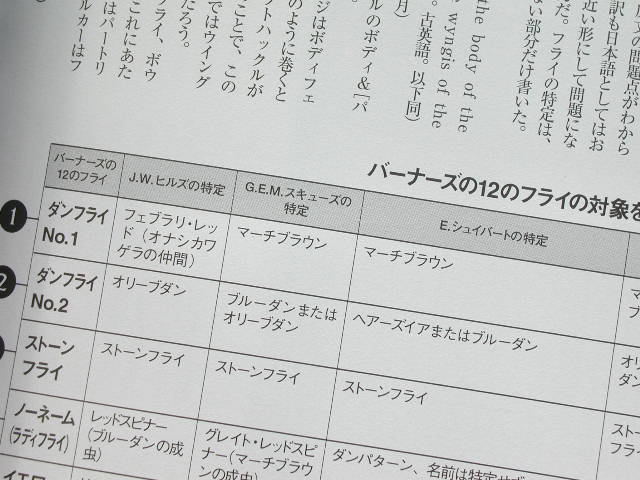 文の問題点がわから
訳も日本語としてはお
近い形にして問題にな
だ。フライの特定は、
ない部分だけ書いた。
the body of the
wyngis of the
古英語。以下同）
ルのボディ&［パ
月）
ジはボディフェ
ットハックルが
のように巻くと
ことで、この
ではウイング
だろう。
フライ、ボウ
これにあた
はパートリ
ルカーはフ
バーナーズの12のフライの対象を
バーナーズの
12のフライ
J.W.ヒルズの特定
G.E.M.スキューズの
特定
E.シュイバートの特定
1
ダンフライ
No.1
フェブラリ・レッ
ド（オナシカワ
ゲラの仲間）
マーチブラウン
マーチブラウン
2
ダンフライ
No.2
オリーブダン
ブルーダンまたは
オリーブダン
ヘアーズイアまたはブルーダン
オリ
ダン
ストーン
フライ
ストーンフライ
ストーンフライ
ストーンフライ
ストー
フライ
ノーネーム
(ラディフライ)
レッドスピナー
（ブルーダンの成
虫）
グレイト・レッドスピ
ナー（マーチブラウ
ンの成虫）
ダンパターン、名前は特定せず
イエロ